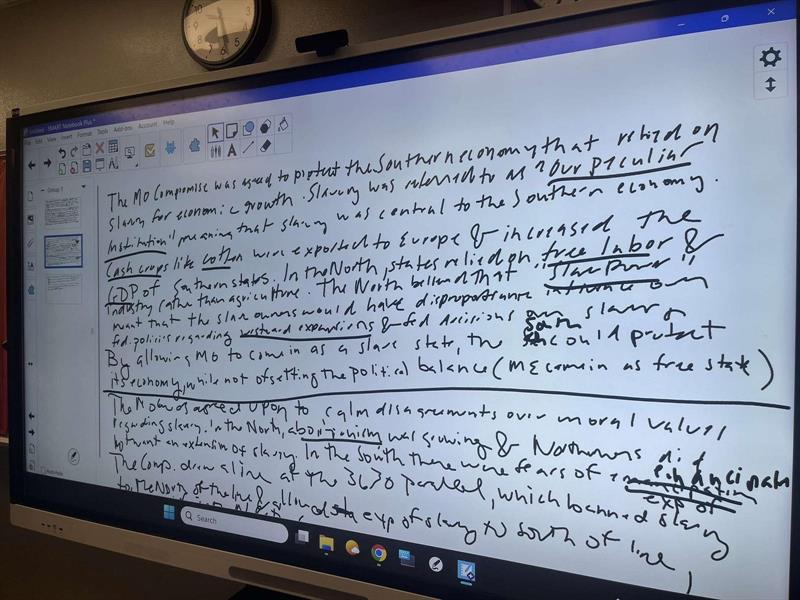 SMART Notebook Plus
File Edit View Insert Format Tools Add-ons Account Help
Group 1
The MO Compromise was agreed to protect the Southern economy that relied on
Slavery for economic growth. Slavery was referred to as "Our peculiar
Institution" meaning that slavery was central to the Southern economy.
Cash crops like cotton were exported to Europe & increased the
GDP of Southern states. In the North, states relied on free labor &
industry rather than agriculture. The North believed that "slave power"
meant that the slave owners would have disproportionate influence over
fed. policies regarding westward expansions & fed decisions on slavery
By allowing MO to come in as a slave state, the South could protect
its economy, while not offsetting the political balance (ME came in as free state)
The MO was agreed upon to calm disagreements over moral values
regarding slavery. In the North, abolitionism was growing & Northerners did
not want an extension of slavery. In the South there were fears of emancipation
The Comp. drew a line at the 36°30 parallel, which banned slavery
to the North of the line & allowed exp of slavery to South of line,
Search